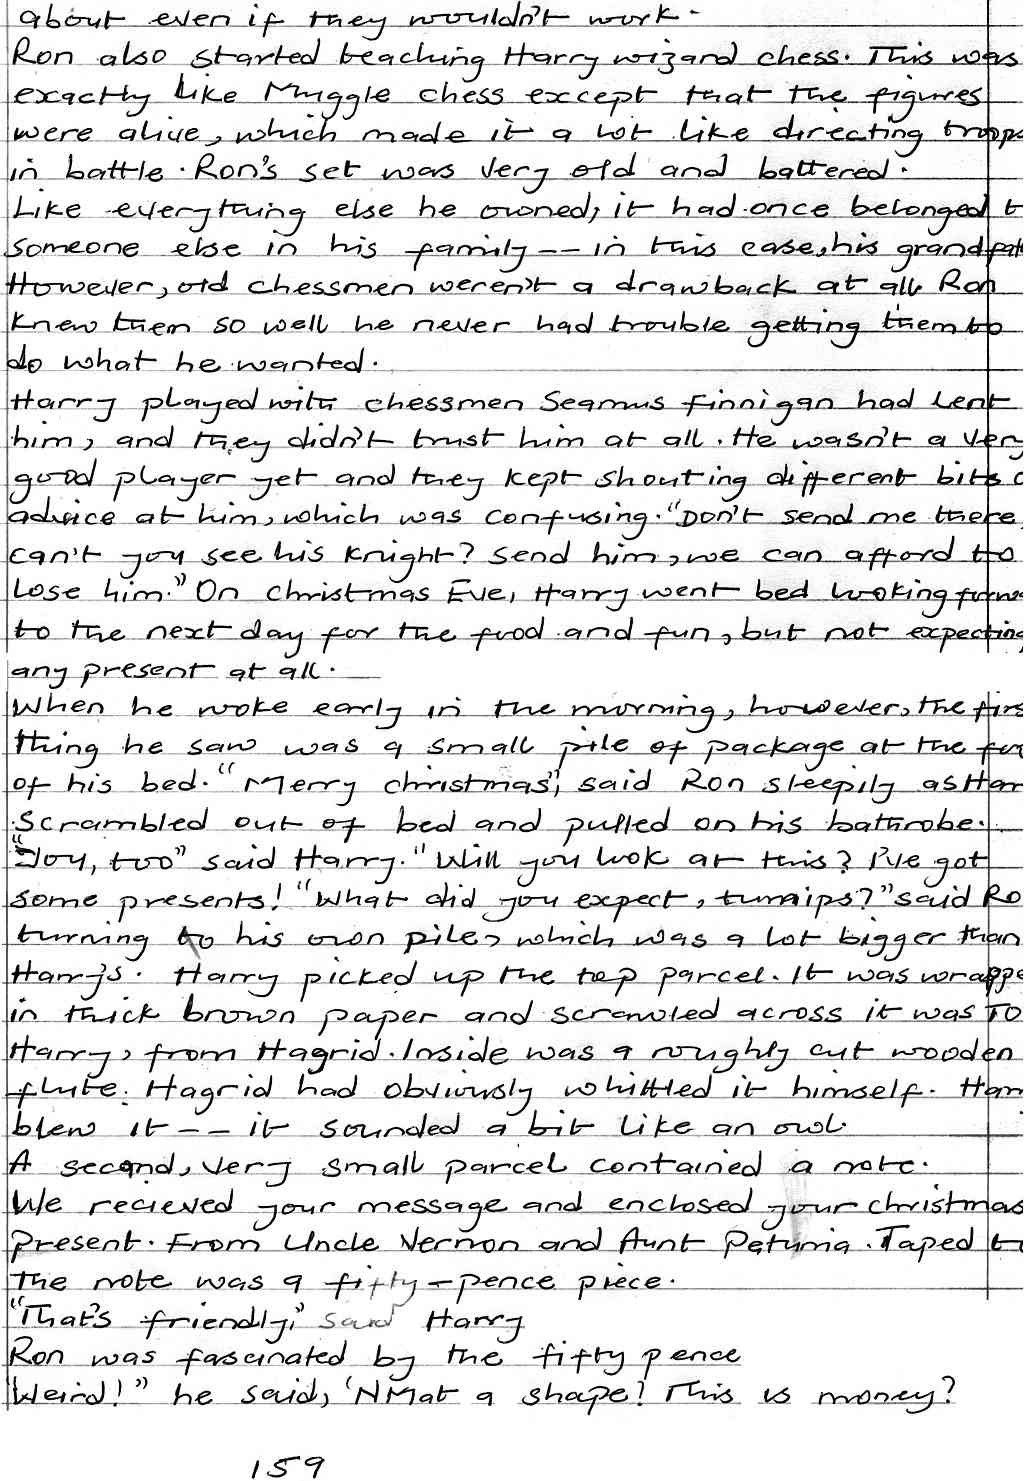 about even if they wouldn't work.
Ron also started teaching Harry wizard chess. This was
exactly like Muggle chess except that the figures
were alive, which made it a lot like directing troops
in battle. Ron's set was very old and battered.
Like everything else he owned, it had once belonged t
someone else in his family -- in this case, his grandfat
However, old chessmen weren't a drawback at all. Ron
knew them so well he never had trouble getting them to
do what he wanted.
Harry played with chessmen Seamus Finnigan had lent
him, and they didn't trust him at all. He wasn't a very
good player yet and they kept shouting different bits o
advice at him, which was confusing. "Don't send me there,
can't you see his knight? Send him, we can afford to
lose him." On christmas Eve, Harry went bed looking forwa
to the next day for the food and fun, but not expecting
any present at all.
When he woke early in the morning, however, the firs
thing he saw was a small pile of package at the foo
of his bed. "Merry christmas", said Ron sleepily as Har
scrambled out of bed and pulled on his bathrobe.
"You, too" said Harry. "Will you look at this? I've got
some presents! "What did you expect, turnips?" said Ro
turning to his own pile, which was a lot bigger than
Harry's. Harry picked up the top parcel. It was wrappe
in thick brown paper and scrawled across it was To
Harry, from Hagrid. Inside was a roughly cut wooden
flute. Hagrid had obviously whittled it himself. Harr
blew it -- it sounded a bit like an owl.
A second, very small parcel contained a note.
We recieved your message and enclosed your christmas
present. From Uncle Vernon and Aunt Petunia. Taped t
the note was a fifty-pence piece.
"That's friendly," said Harry
Ron was fascinated by the fifty pence
"Weird!" he said, 'NMat a shape! This is money?
159